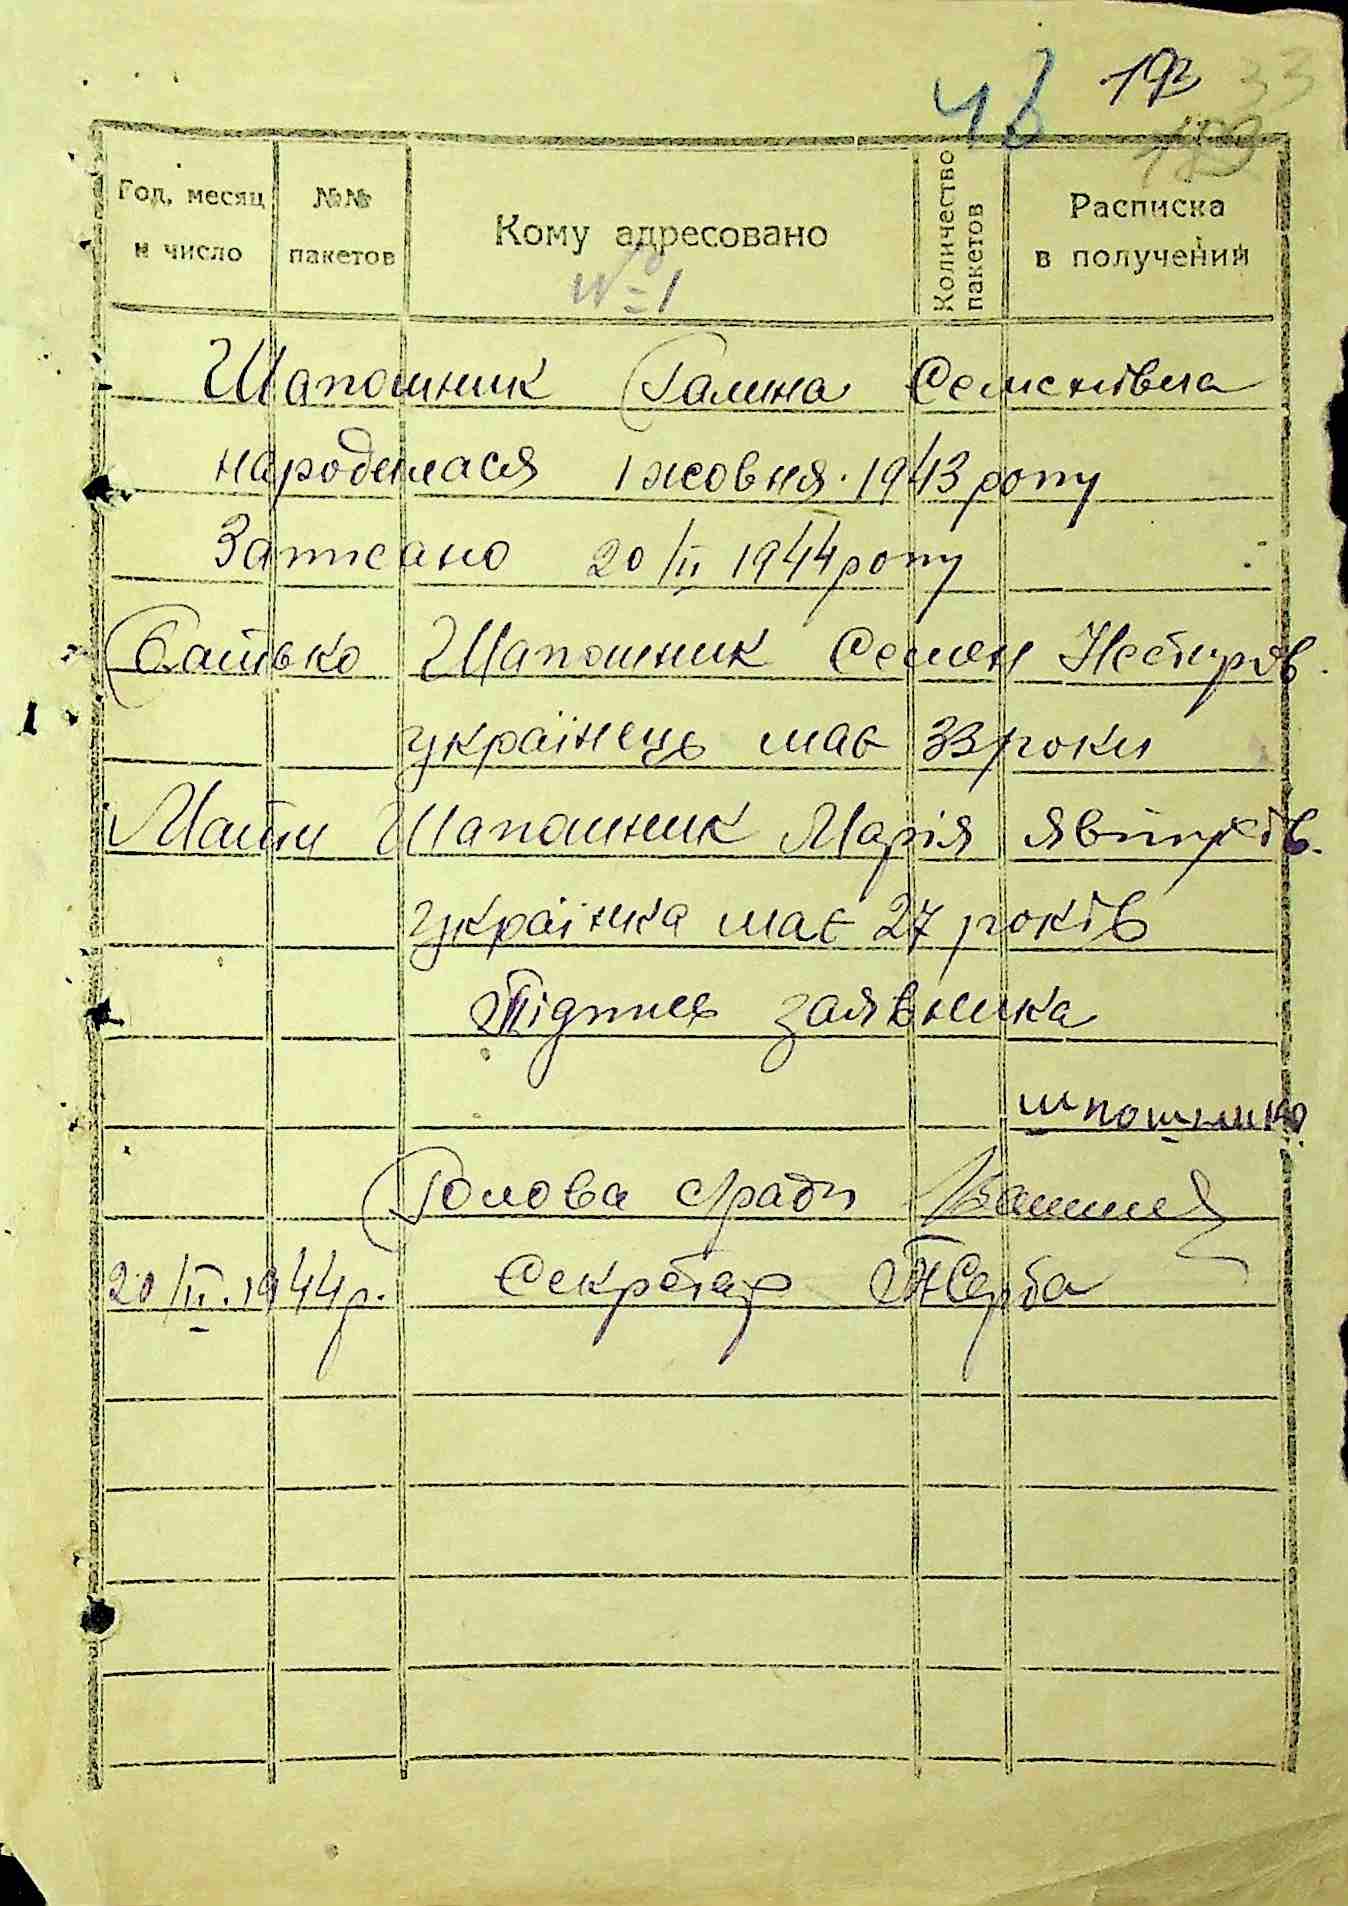 43 193 33
193
Год, месяц и число
№№ пакетов
Кому адресовано
Количество пакетов
Расписка в получении
№ 1
Шапошник Галина Семенівна
народилася 1 жовня. 1943 року
Записано 20/II 1944 року
Батько Шапошник Семен Нестиров.
українець має 33 роки
Мати Шапошник Марія
українка має 27 років
Підпись заявника
Голова с/ради
20/II. 1944 р. Секретар Серба